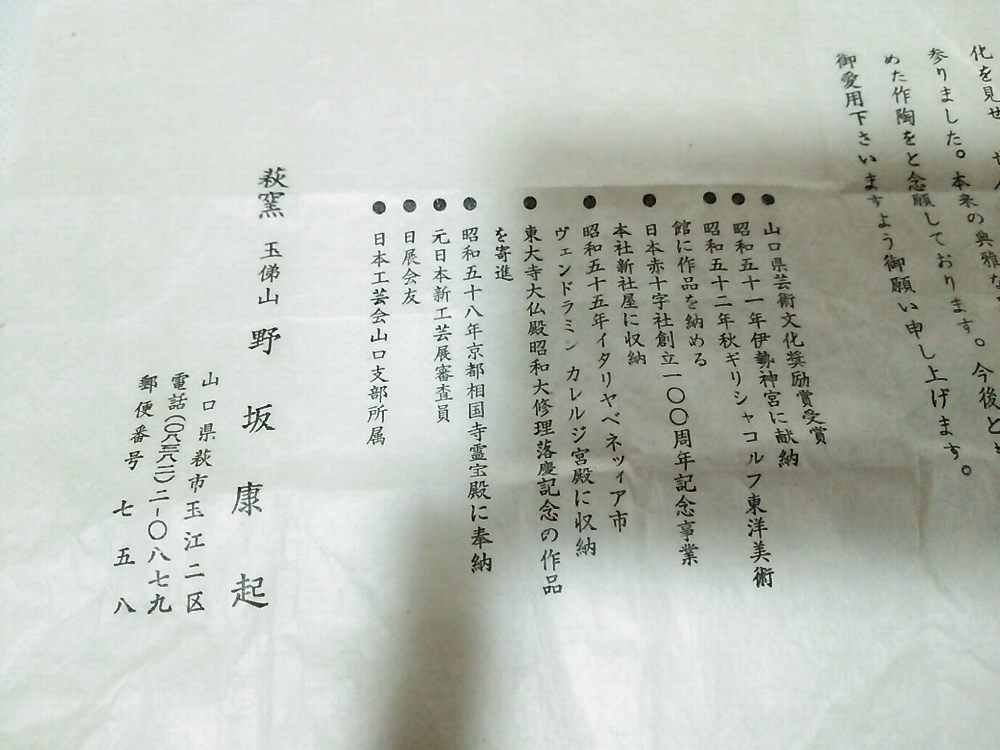 化を見せ
参りました。本来の典雅な
めた作陶をと念願しております。今後とも
御愛用下さいますよう御願い申し上げます。
●山口県芸術文化奨励賞受賞
●昭和五十一年伊勢神宮に献納
●昭和五十二年秋ギリシャコルフ東洋美術
館に作品を納める
●日本赤十字社創立一〇〇周年記念事業
本社新社屋に収納
●昭和五十五年イタリヤベネッィア市
ヴェンドラミン カレルジ宮殿に収納
●東大寺大仏殿昭和大修理落慶記念の作品
を寄進
●昭和五十八年京都相国寺霊宝殿に奉納
●元日本新工芸展審査員
●日展会友
●日本工芸会山口支部所属
萩窯 玉俤山 野坂康起
山口県萩市玉江二区
電話(〇八三八二)二-〇八七九
郵便番号 七五八